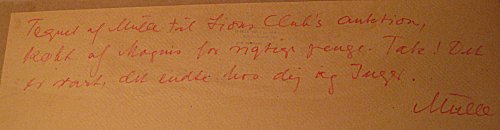 Tegnet af Mulle til Lions Club's auktion,
købt af Magnus for rigtige penge. Tak! Det
er rart, det endte hos dig og Inger.
Mulle